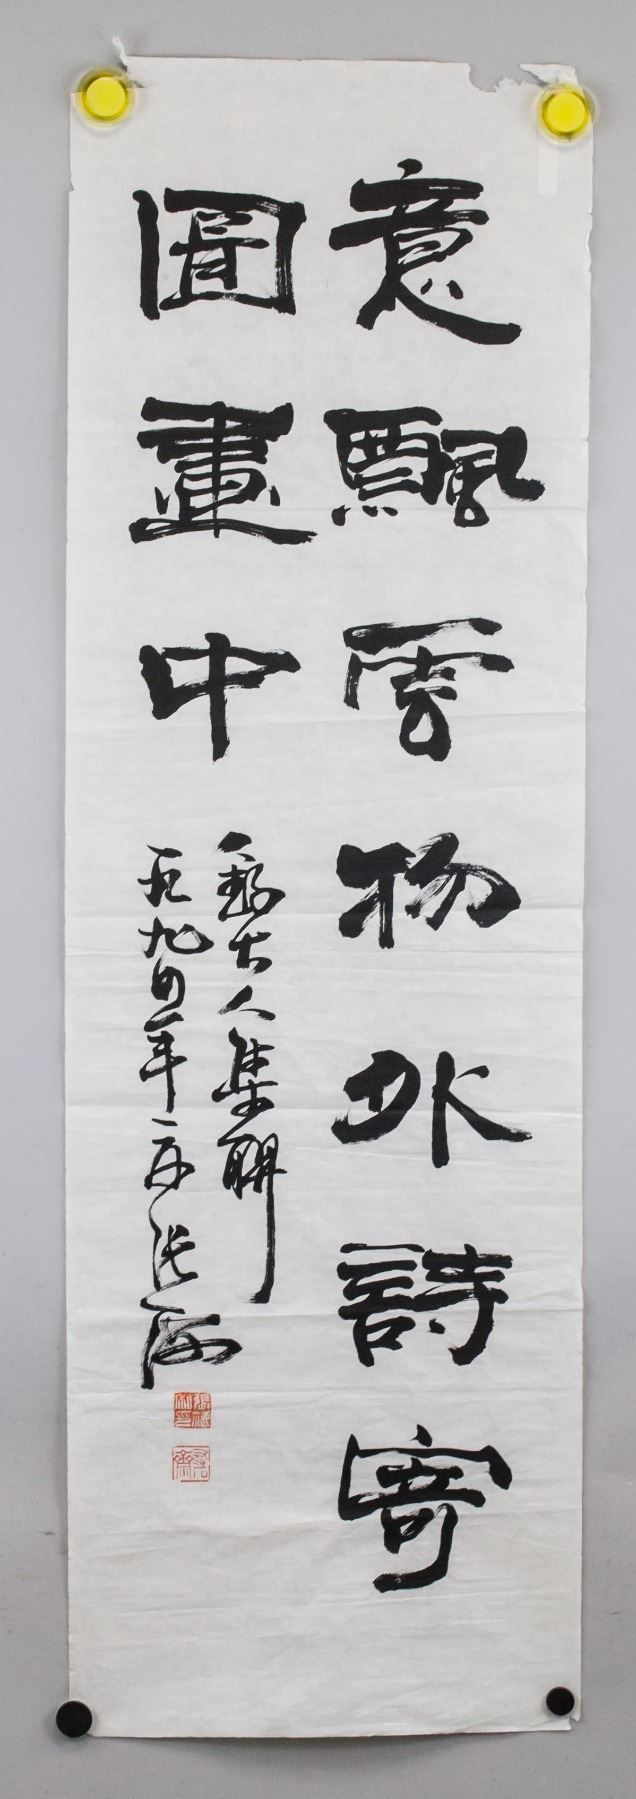 意飄雲物外詩寄
圖畫中
大人集聯
一九九四年